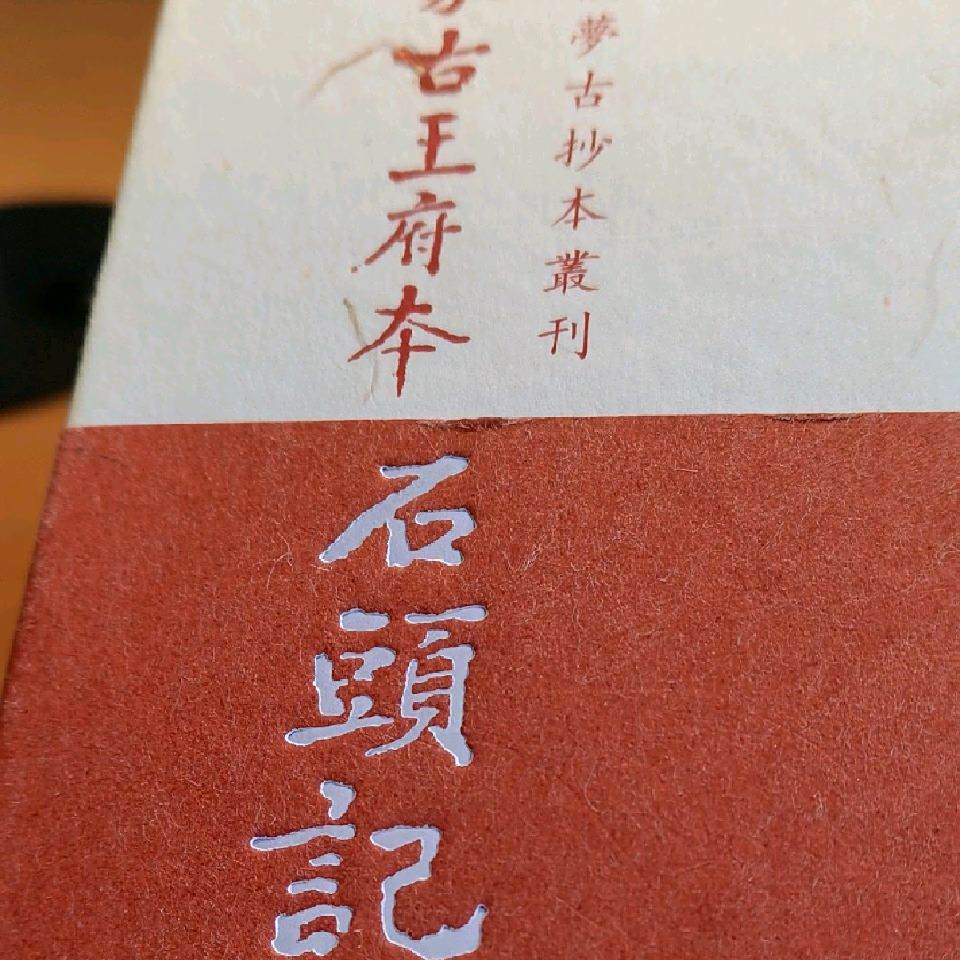 夢古抄本叢刊
古王府本
石頭記